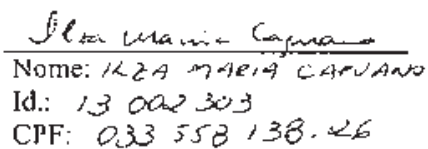 Ilza Maria Capuano
Nome: ILZA MARIA CAPUANO
Id.: 13 002 303
CPF: 033 558 138-26